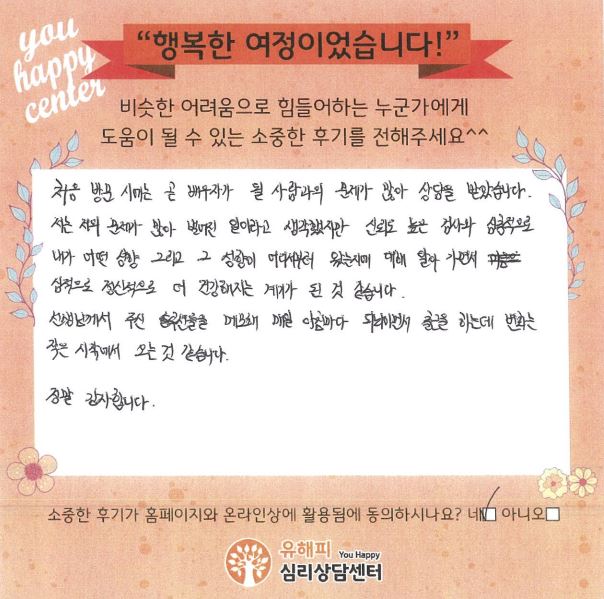 you
happy
center
“행복한 여정이었습니다!”
비슷한 어려움으로 힘들어하는 누군가에게
도움이 될 수 있는 소중한 후기를 전해주세요^^
처음 방문 시에는 곧 배우자가 될 사람과의 문제가 많아 상담을 받았습니다.
저는 저의 문제가 많아 벌어진 일이라고 생각했지만 신뢰도 높은 검사와 심층적으로
내가 어떤 성향 그리고 그 성향이 어디서부터 왔는지에 대해 알아 가면서
심적으로 정신적으로 더 건강해지는 계기가 된 것 같습니다.
선생님께서 주신 메모해 매일 아침마다 되뇌이면서 출근을 하는데 변화는
작은 시작에서 오는 것 같습니다.
정말 감사합니다.
소중한 후기가 홈페이지와 온라인상에 활용됨에 동의하시나요? 네 아니오
유해피 You Happy
심리상담센터